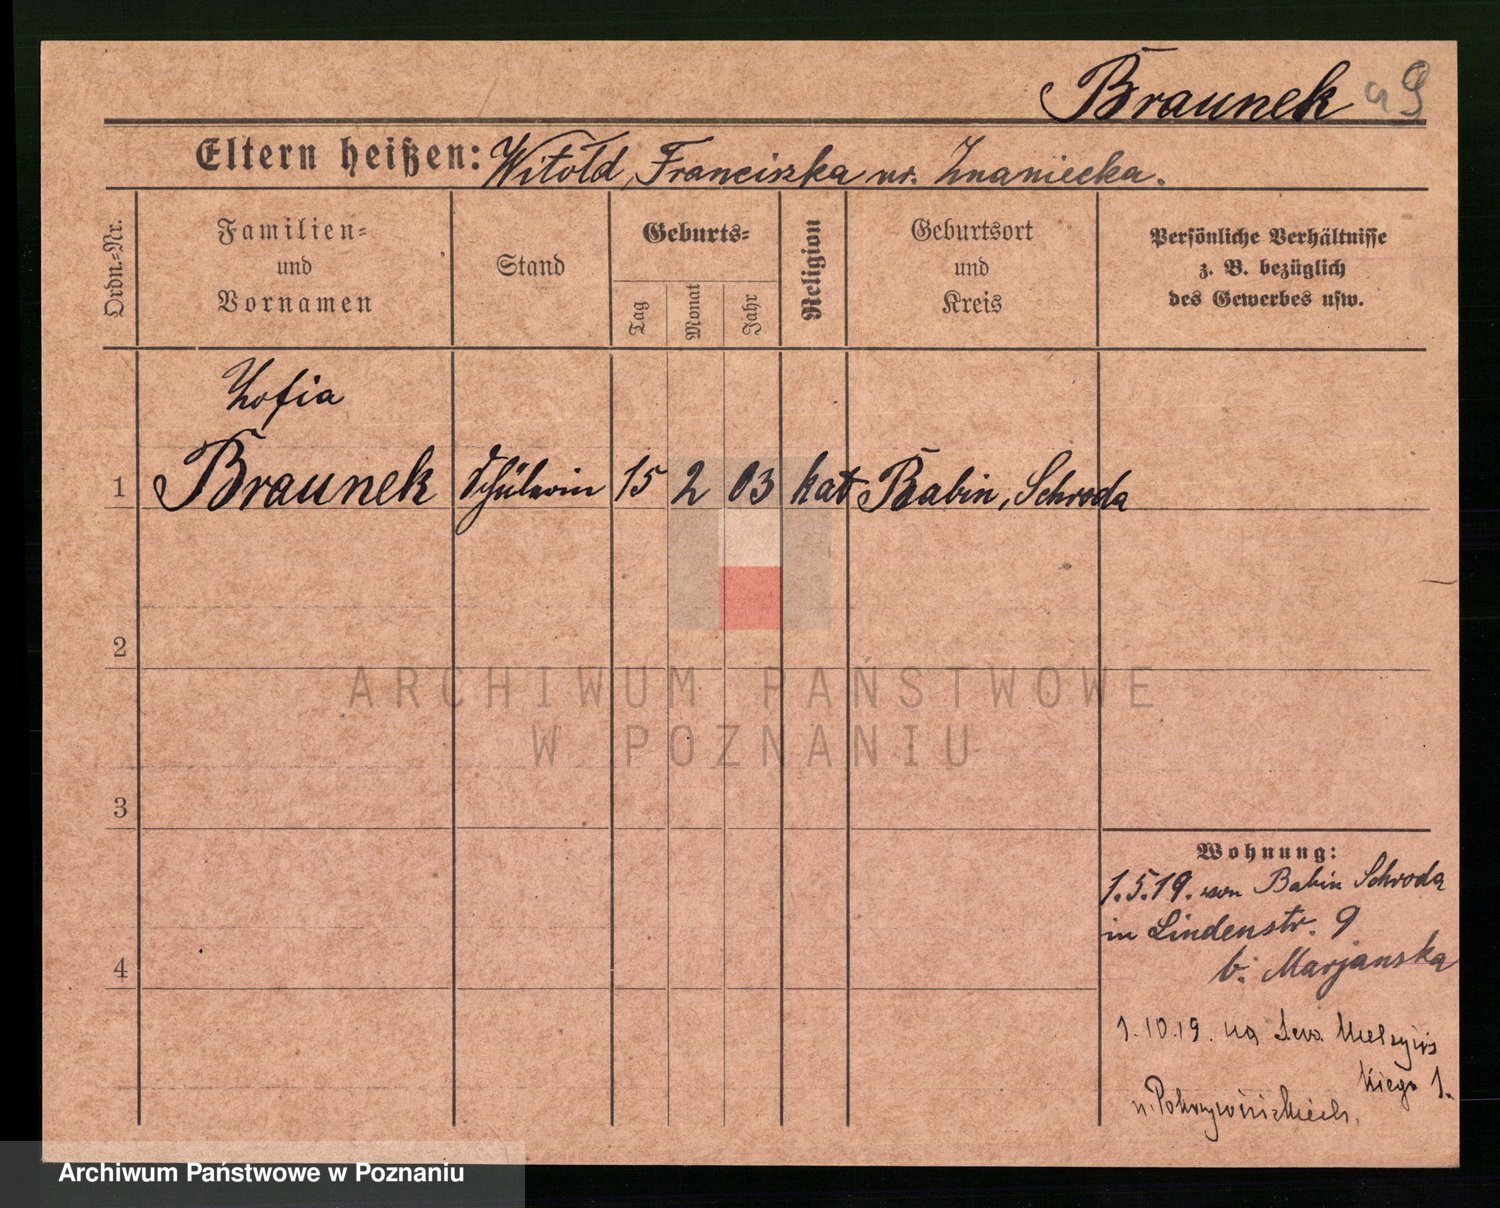 Braunek a 9
Eltern heißen: Witold, Franciszka ur. Znaniecka.
Ordn.-Nr.
Familien-
und
Vornamen
Stand
Geburts-
Tag
Monat
Jahr
Religion
Geburtsort
und
Kreis
Persönliche Verhältnisse
z. B. bezüglich
des Gewerbes usw.
Zofia
1 Braunek Schülerin 15 2 03 kat Babin, Schroda
2
3
4
Wohnung:
1.5.19. von Babin Schroda
in Lindenstr. 9
b. Marjanska
1.10.19. na Sew. Mielżyńs
kiego 1.
u. Pokrzywnickiech.
ARCHIWUM PAŃSTWOWE
W POZNANIU
Archiwum Państwowe w Poznaniu